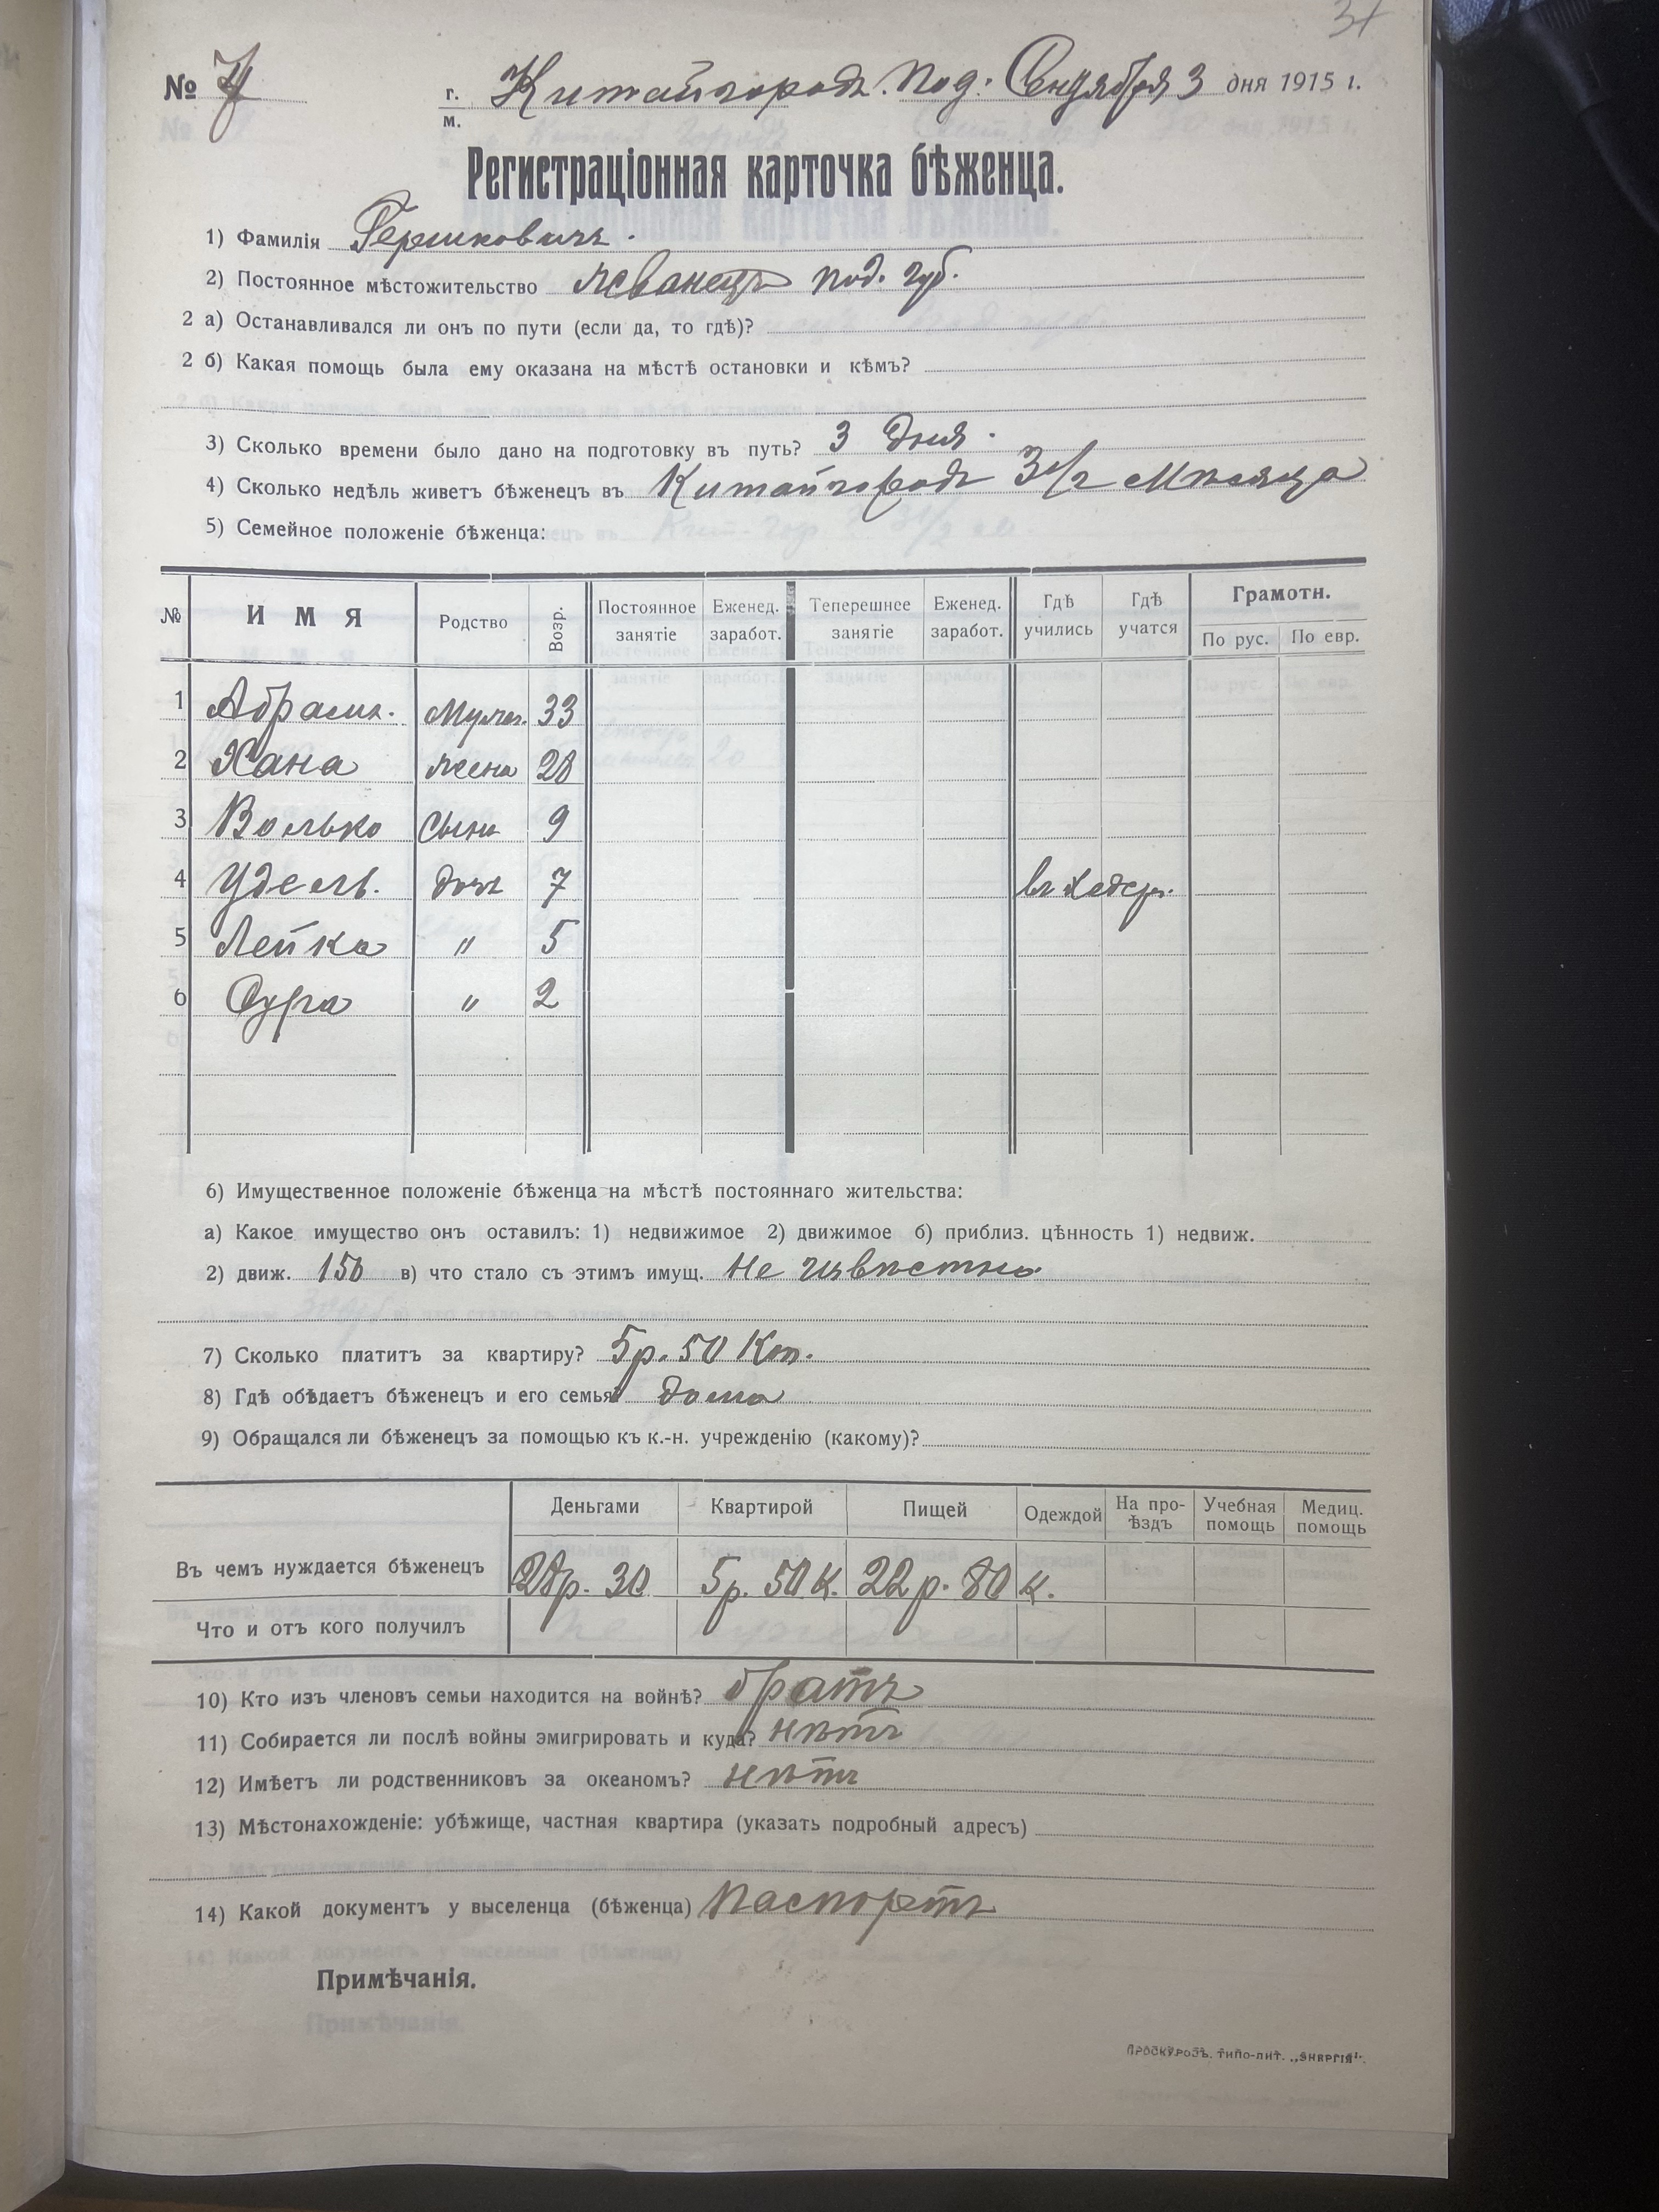 № 7
г. м. Китайгородъ. Под. Сентября 3 дня 1915 г.
Регистраціонная карточка бѣженца.
1) Фамилія Гершковичъ.
2) Постоянное мѣстожительство Жванецъ под. губ.
2 а) Останавливался ли онъ по пути (если да, то гдѣ)?
2 б) Какая помощь была ему оказана на мѣстѣ остановки и кѣмъ?
3) Сколько времени было дано на подготовку въ путь? 3 дня.
4) Сколько недѣль живетъ бѣженецъ въ Китайгородѣ 3 1/2 мѣсяца
5) Семейное положеніе бѣженца:
№ ИМЯ Родство Возр. Постоянное занятіе Еженед. заработ. Теперешнее занятіе Еженед. заработ. Гдѣ учились Гдѣ учатся Грамотн.
По рус. По евр.
1 Абрамъ. Мужъ. 33
2 Хана жена 28
3 Волько сынъ 9
4 Удель. дочь 7 въ хедерѣ.
5 Лейка " 5
6 Сура " 2
6) Имущественное положеніе бѣженца на мѣстѣ постояннаго жительства:
а) Какое имущество онъ оставилъ: 1) недвижимое 2) движимое б) приблиз. цѣнность 1) недвиж.
2) движ. 150 в) что стало съ этимъ имущ. Не извѣстно
7) Сколько платитъ за квартиру? 5р. 50 Коп.
8) Гдѣ обѣдаетъ бѣженецъ и его семья? дома
9) Обращался ли бѣженецъ за помощью къ к.-н. учрежденію (какому)?
Деньгами Квартирой Пищей Одеждой На проѣздъ Учебная помощь Медиц. помощь
Въ чемъ нуждается бѣженецъ 28р. 30 5р. 50 к. 22 р. 80 к.
Что и отъ кого получилъ
10) Кто изъ членовъ семьи находится на войнѣ? братъ
11) Собирается ли послѣ войны эмигрировать и куда? нѣтъ
12) Имѣетъ ли родственниковъ за океаномъ? нѣтъ
13) Мѣстонахожденіе: убѣжище, частная квартира (указать подробный адресъ)
14) Какой документъ у выселенца (бѣженца) Паспортъ
Примѣчанія.
ПРОСКУРОВЪ. ТИПО-ЛИТ. „ЭНЕРГІЯ".